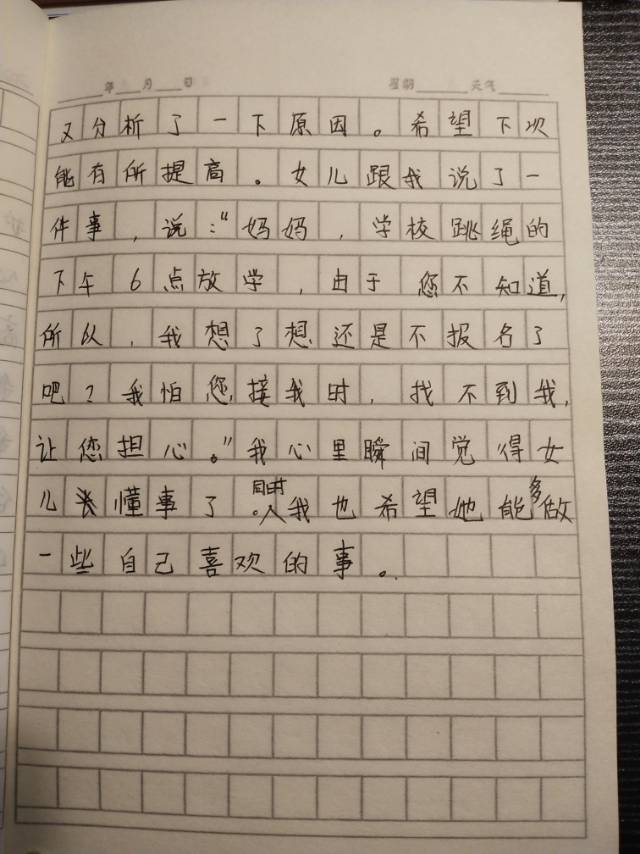 年 月 日 星期 天气
又分析了一下原因。希望下次
能有所提高。女儿跟我说了一
件事，说：“妈妈，学校跳绳的
下午6点放学，由于您不知道，
所以，我想了想还是不报名了
吧？我怕您接我时，找不到我，
让您担心。”我心里瞬间觉得女
儿长懂事了。同时我也希望她能多做
一些自己喜欢的事。